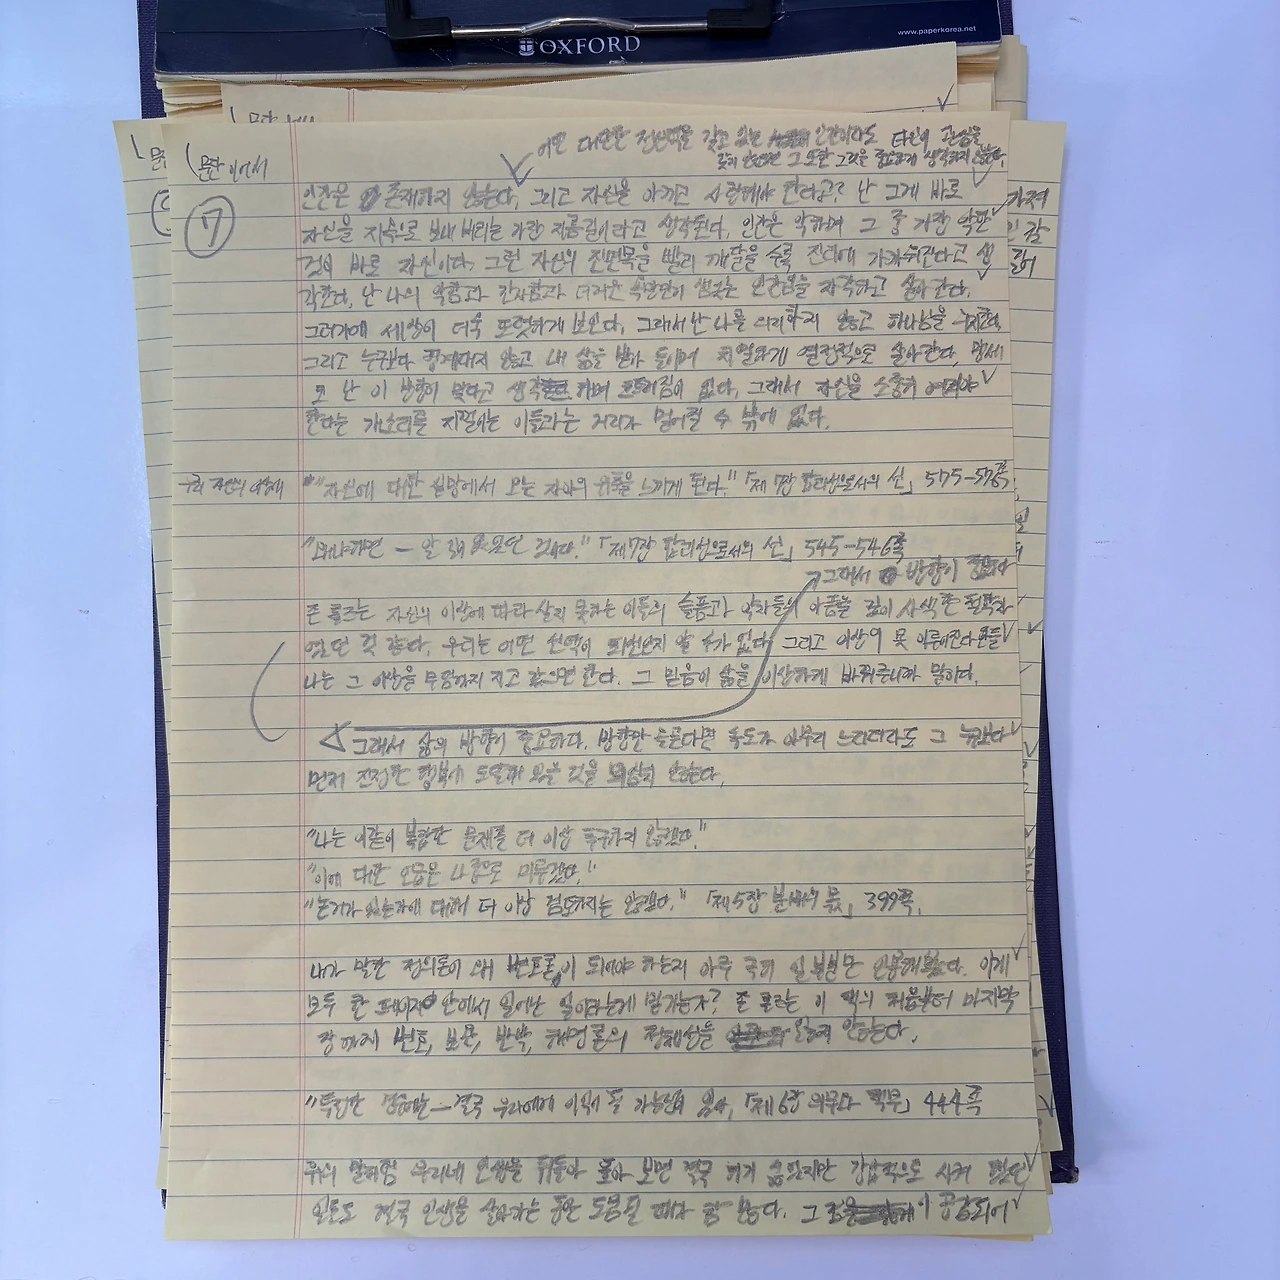 www.paperkorea.net
OXFORD
어떤 대단한 정신력을 갖고 있는 인간이라도 타인의 관심을
갖지 않으면 그 또한 그것을 중요하게 생각하지 않는다.
문단 이어서
인간은 존재하지 않는다. 그리고 자신을 아끼고 사랑해야 한다고? 난 그게 바로
⑦
자신을 지옥으로 보내 버리는 가장 지름길이라고 생각된다. 인간은 악하며 그 중 가장 악한
것이 바로 자신이다. 그런 자신의 진면목을 빨리 깨달을 수록 진리에 가까워진다고 생
각한다. 난 나의 악함과 간사함과 더러운 인간임을 자각하고 살아간다.
그러기에 세상이 더욱 또렷하게 보인다. 그래서 난 나를 의지하지 않고 하나님을 의지한다.
그리고 누구보다 핑계대지 않고 내 삶을 받아 들이며 치열하게 열정적으로 살아간다. 맹세
코 난 이 방향이 맞다고 생각하며 흐트러짐이 없다. 그래서 자신을 소중히 여겨야
한다는 개소리를 지껄이는 이들과는 거리가 멀어질 수 밖에 없다.
"자신에 대한 실망에서 오는 자아의 위축을 느끼게 된다." 「제 7장 합리성으로서의 선」 575-576쪽
"왜냐하면 — 알 것이다." 「제7장 합리성으로서의 선」 545-546쪽
그래서 방향이 중요하다
존 롤즈는 자신의 이상에 따라 살지 못하는 이들의 슬픔과 약자들의 아픔을 깊이 사색한 철학자
였던 것 같다. 우리는 어떤 선택이 최선인지 알 수가 없다. 그리고 이상이 못 이루어진다 한들
나는 그 이상을 무덤까지 지고 갔으면 한다. 그 믿음이 삶을 이상하게 바꿔주니까 말이다.
그래서 삶의 방향이 중요하다. 방향만 옳다면 속도가 아무리 느리더라도 그 누구보다
먼저 진정한 행복에 도달해 있을 것을 의심치 않는다.
"나는 이같이 복잡한 문제를 더 이상 추구하지 않겠다."
"이에 대한 언급은 나중으로 미루겠다."
"근거가 있는가에 대해 더 이상 검토하지는 않겠다." 「제5장 분배의 몫」 399쪽.
내가 말한 정의론이 왜 변호론이 되어야 하는지 아주 극히 일부분만 인용해 봤다. 이게
모두 한 페이지 안에서 일어난 일이라는게 믿기는가? 존 롤즈는 이 책의 처음부터 마지막
장까지 변호, 보론, 반박, 해명론의 정체성을 잃지 않는다.
"특별한 경우에만 — 결국 우리에게 이익이 될 가능성이 있다. 「제6장 의무와 책무」 444쪽
위의 말처럼 우리네 인생을 뒤돌아 보면 결국 하기 싫었지만 강압적으로 시켜 했던
일들도 결국 인생을 살아가는 동안 도움될 때가 참 많다. 그 이 공감되어